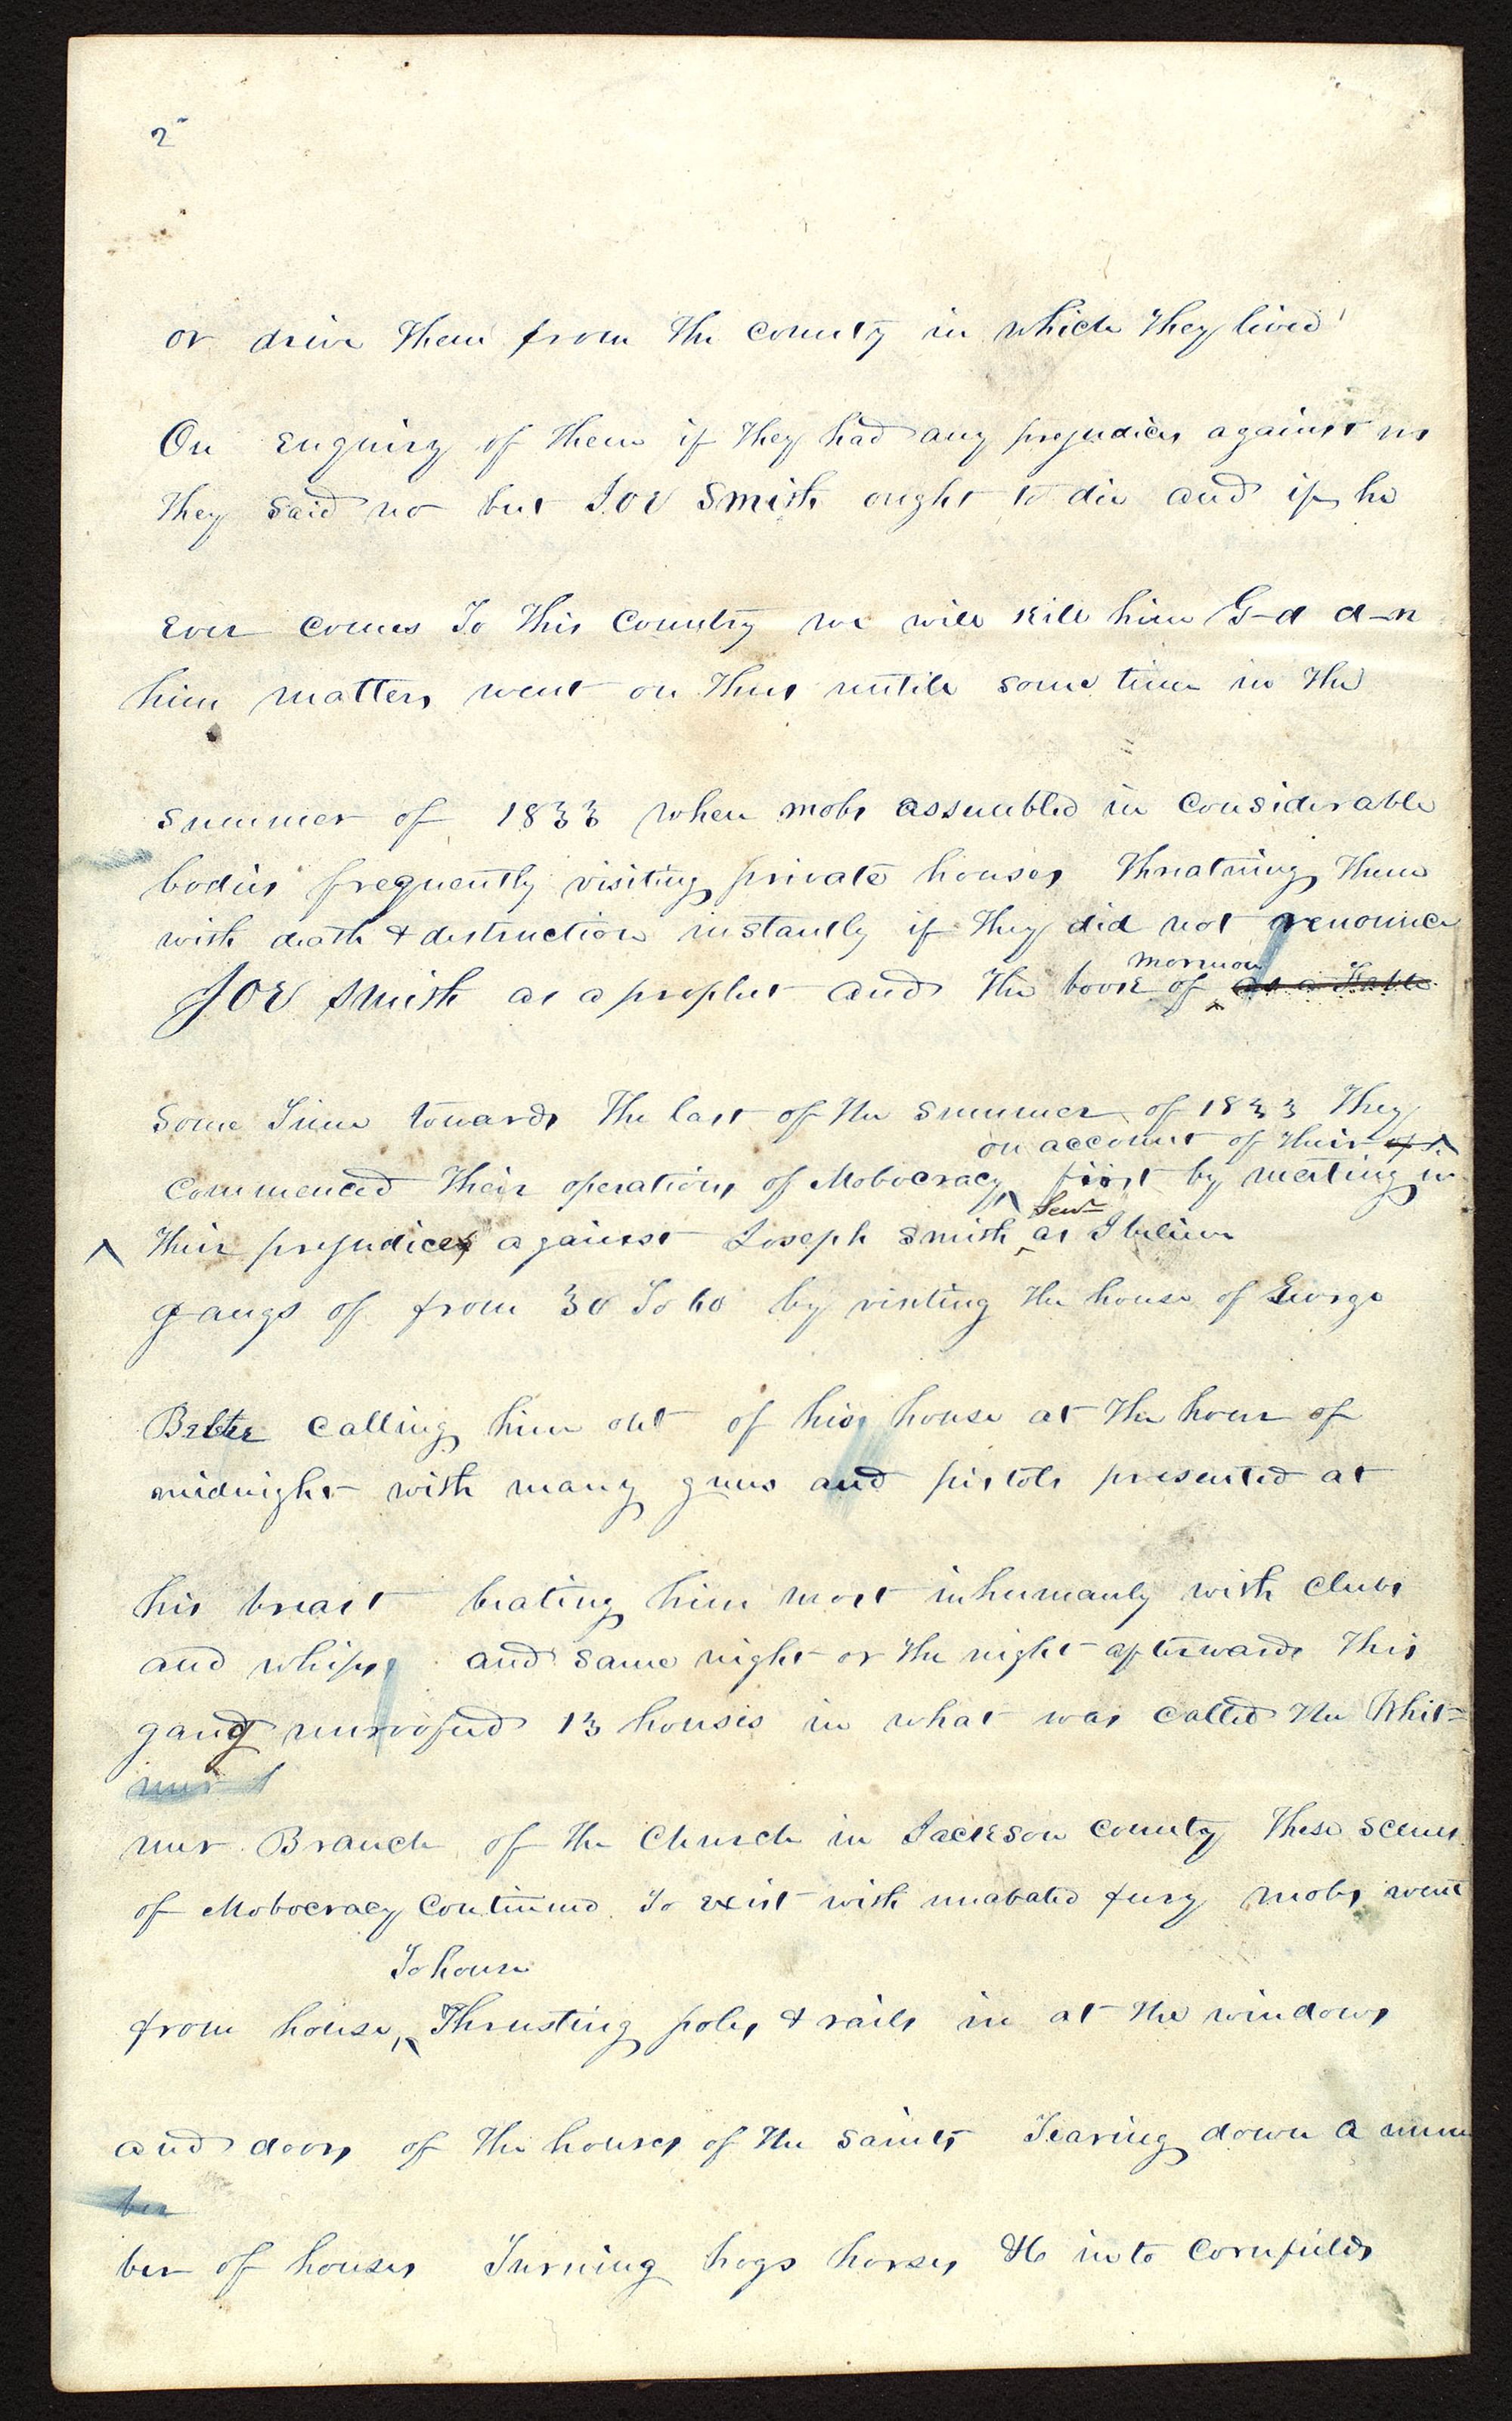 2
or drive them from the county in which they lived
On Enquiry of them if they had any prejudices against us
they said no but Joe Smith ought to die and if he
Ever comes To this Country we will kill him G-d d-n
him matters went on thus untill some time in the
summer of 1833 when mobs assembled in considerable
bodies frequently visiting private houses threatning them
with death & destruction instantly if they did not renounce
mormon
Joe Smith as a prophet and the book of as a Fable
Some Time towards the last of the summer of 1833 they
on account of their
commenced their operations of Mobocracy first by meeting in
Senr
their prejudices against Joseph Smith as I believe
gangs of from 30 To 60 by visiting the house of George
Bebee calling him out of his house at the hour of
midnight with many guns and pistols presented at
his breast beating him most inhumanly with clubs
and whips and same night or the night afterwards this
gang unroofed 13 houses in what was called the Whit=
mer
mer Branch of the Church in Jackson county These scenes
of Mobocracy continued To exist with unabated fury mobs went
To house
from house Thrusting poles & rails in at the windows
and doors of the houses of the saints Tearing down a num
ber
ber of houses Turning hogs horses &c into cornfields